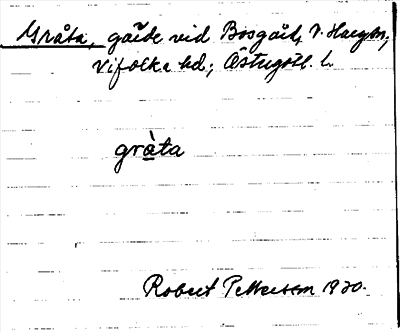 Gråta, gärde vid Bosgård, V. Harg sn;
Vifolka hd; Östergötl. l.
gràta
Robert Pettersson 1930.